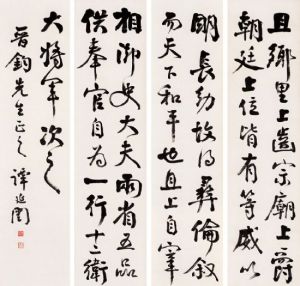 且鄉里上齒宗廟上爵
朝廷上位皆有等威以
明長幼故得彝倫敘
而天下和平也且上自宰
相御史大夫兩省五品
供奉官自為一行十二衛
大將軍次之
晉鈞先生正之 譚延闓